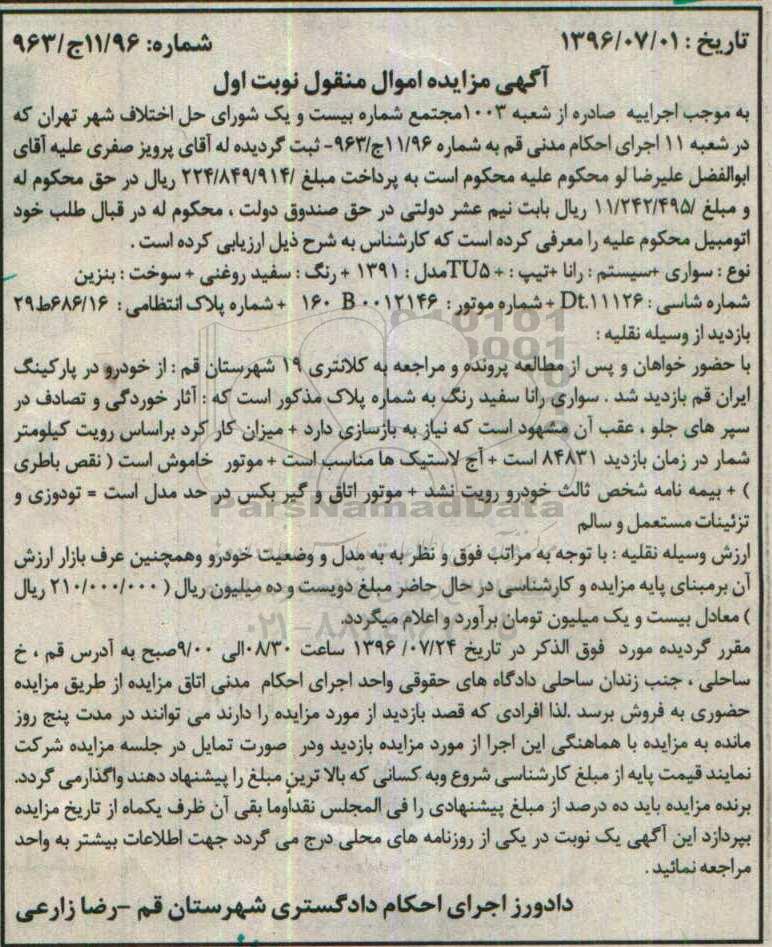 تاریخ : ۱۳۹۶/۰۷/۰۱ شماره: ۱۱/۹۶ج/۹۶۳
آگهی مزایده اموال منقول نوبت اول
به موجب اجراییه صادره از شعبه ۱۰۰۳مجتمع شماره بیست و یک شورای حل اختلاف شهر تهران که
در شعبه ۱۱ اجرای احکام مدنی قم به شماره ۱۱/۹۶ج/۹۶۳- ثبت گردیده له آقای پرویز صفری علیه آقای
ابوالفضل علیرضا لو محکوم علیه محکوم است به پرداخت مبلغ /۲۲۴/۸۴۹/۹۱۴ ریال در حق محکوم له
و مبلغ /۱۱/۲۴۲/۴۹۵ ریال بابت نیم عشر دولتی در حق صندوق دولت ، محکوم له در قبال طلب خود
اتومبیل محکوم علیه را معرفی کرده است که کارشناس به شرح ذیل ارزیابی کرده است .
نوع : سواری +سیستم : رانا +تیپ : + TU۵مدل : ۱۳۹۱ + رنگ : سفید روغنی + سوخت : بنزین
شماره شاسی : Dt.۱۱۱۲۶ + شماره موتور : ۱۶۰ B ۰۰۱۲۱۴۶ + شماره پلاک انتظامی : ۶۸۶/۱۶ط۲۹
بازدید از وسیله نقلیه :
با حضور خواهان و پس از مطالعه پرونده و مراجعه به کلانتری ۱۹ شهرستان قم : از خودرو در پارکینگ
ایران قم بازدید شد . سواری رانا سفید رنگ به شماره پلاک مذکور است که : آثار خوردگی و تصادف در
سپر های جلو ، عقب آن مشهود است که نیاز به بازسازی دارد + میزان کار کرد براساس رویت کیلومتر
شمار در زمان بازدید ۸۴۸۳۱ است + آج لاستیک ها مناسب است + موتور خاموش است ( نقص باطری
) + بیمه نامه شخص ثالث خودرو رویت نشد + موتور اتاق و گیر بکس در حد مدل است = تودوزی و
تزئینات مستعمل و سالم
ارزش وسیله نقلیه : با توجه به مراتب فوق و نظر به به مدل و وضعیت خودرو وهمچنین عرف بازار ارزش
آن برمبنای پایه مزایده و کارشناسی در حال حاضر مبلغ دویست و ده میلیون ریال ( ۲۱۰/۰۰۰/۰۰۰ ریال
) معادل بیست و یک میلیون تومان برآورد و اعلام میگردد.
مقرر گردیده مورد فوق الذکر در تاریخ ۱۳۹۶ /۰۷/۲۴ ساعت ۰۸/۳۰الی ۹/۰۰صبح به آدرس قم ، خ
ساحلی ، جنب زندان ساحلی دادگاه های حقوقی واحد اجرای احکام مدنی اتاق مزایده از طریق مزایده
حضوری به فروش برسد .لذا افرادی که قصد بازدید از مورد مزایده را دارند می توانند در مدت پنج روز
مانده به مزایده با هماهنگی این اجرا از مورد مزایده بازدید ودر صورت تمایل در جلسه مزایده شرکت
نمایند قیمت پایه از مبلغ کارشناسی شروع وبه کسانی که بالا ترین مبلغ را پیشنهاد دهند واگذارمی گردد.
برنده مزایده باید ده درصد از مبلغ پیشنهادی را فی المجلس نقداوما بقی آن ظرف یکماه از تاریخ مزایده
بپردازد این آگهی یک نوبت در یکی از روزنامه های محلی درج می گردد جهت اطلاعات بیشتر به واحد
مراجعه نمائید .
دادورز اجرای احکام دادگستری شهرستان قم -رضا زارعی
ParsNamadData